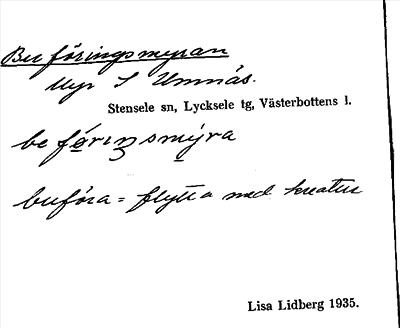 Buföringsmyran
Myr S Umnäs.
Stensele sn, Lycksele tg, Västerbottens l.
be førıŋsmýra
buföra = flytta med kreatur
Lisa Lidberg 1935.